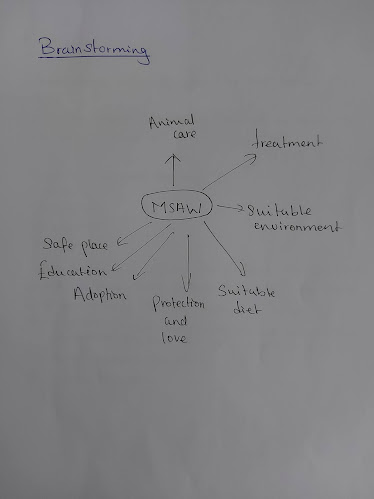 Brainstorming
Animal
care
treatment
MSAW
Suitable
environment
Safe place
Education
Adoption
Protection
and
love
Suitable
diet